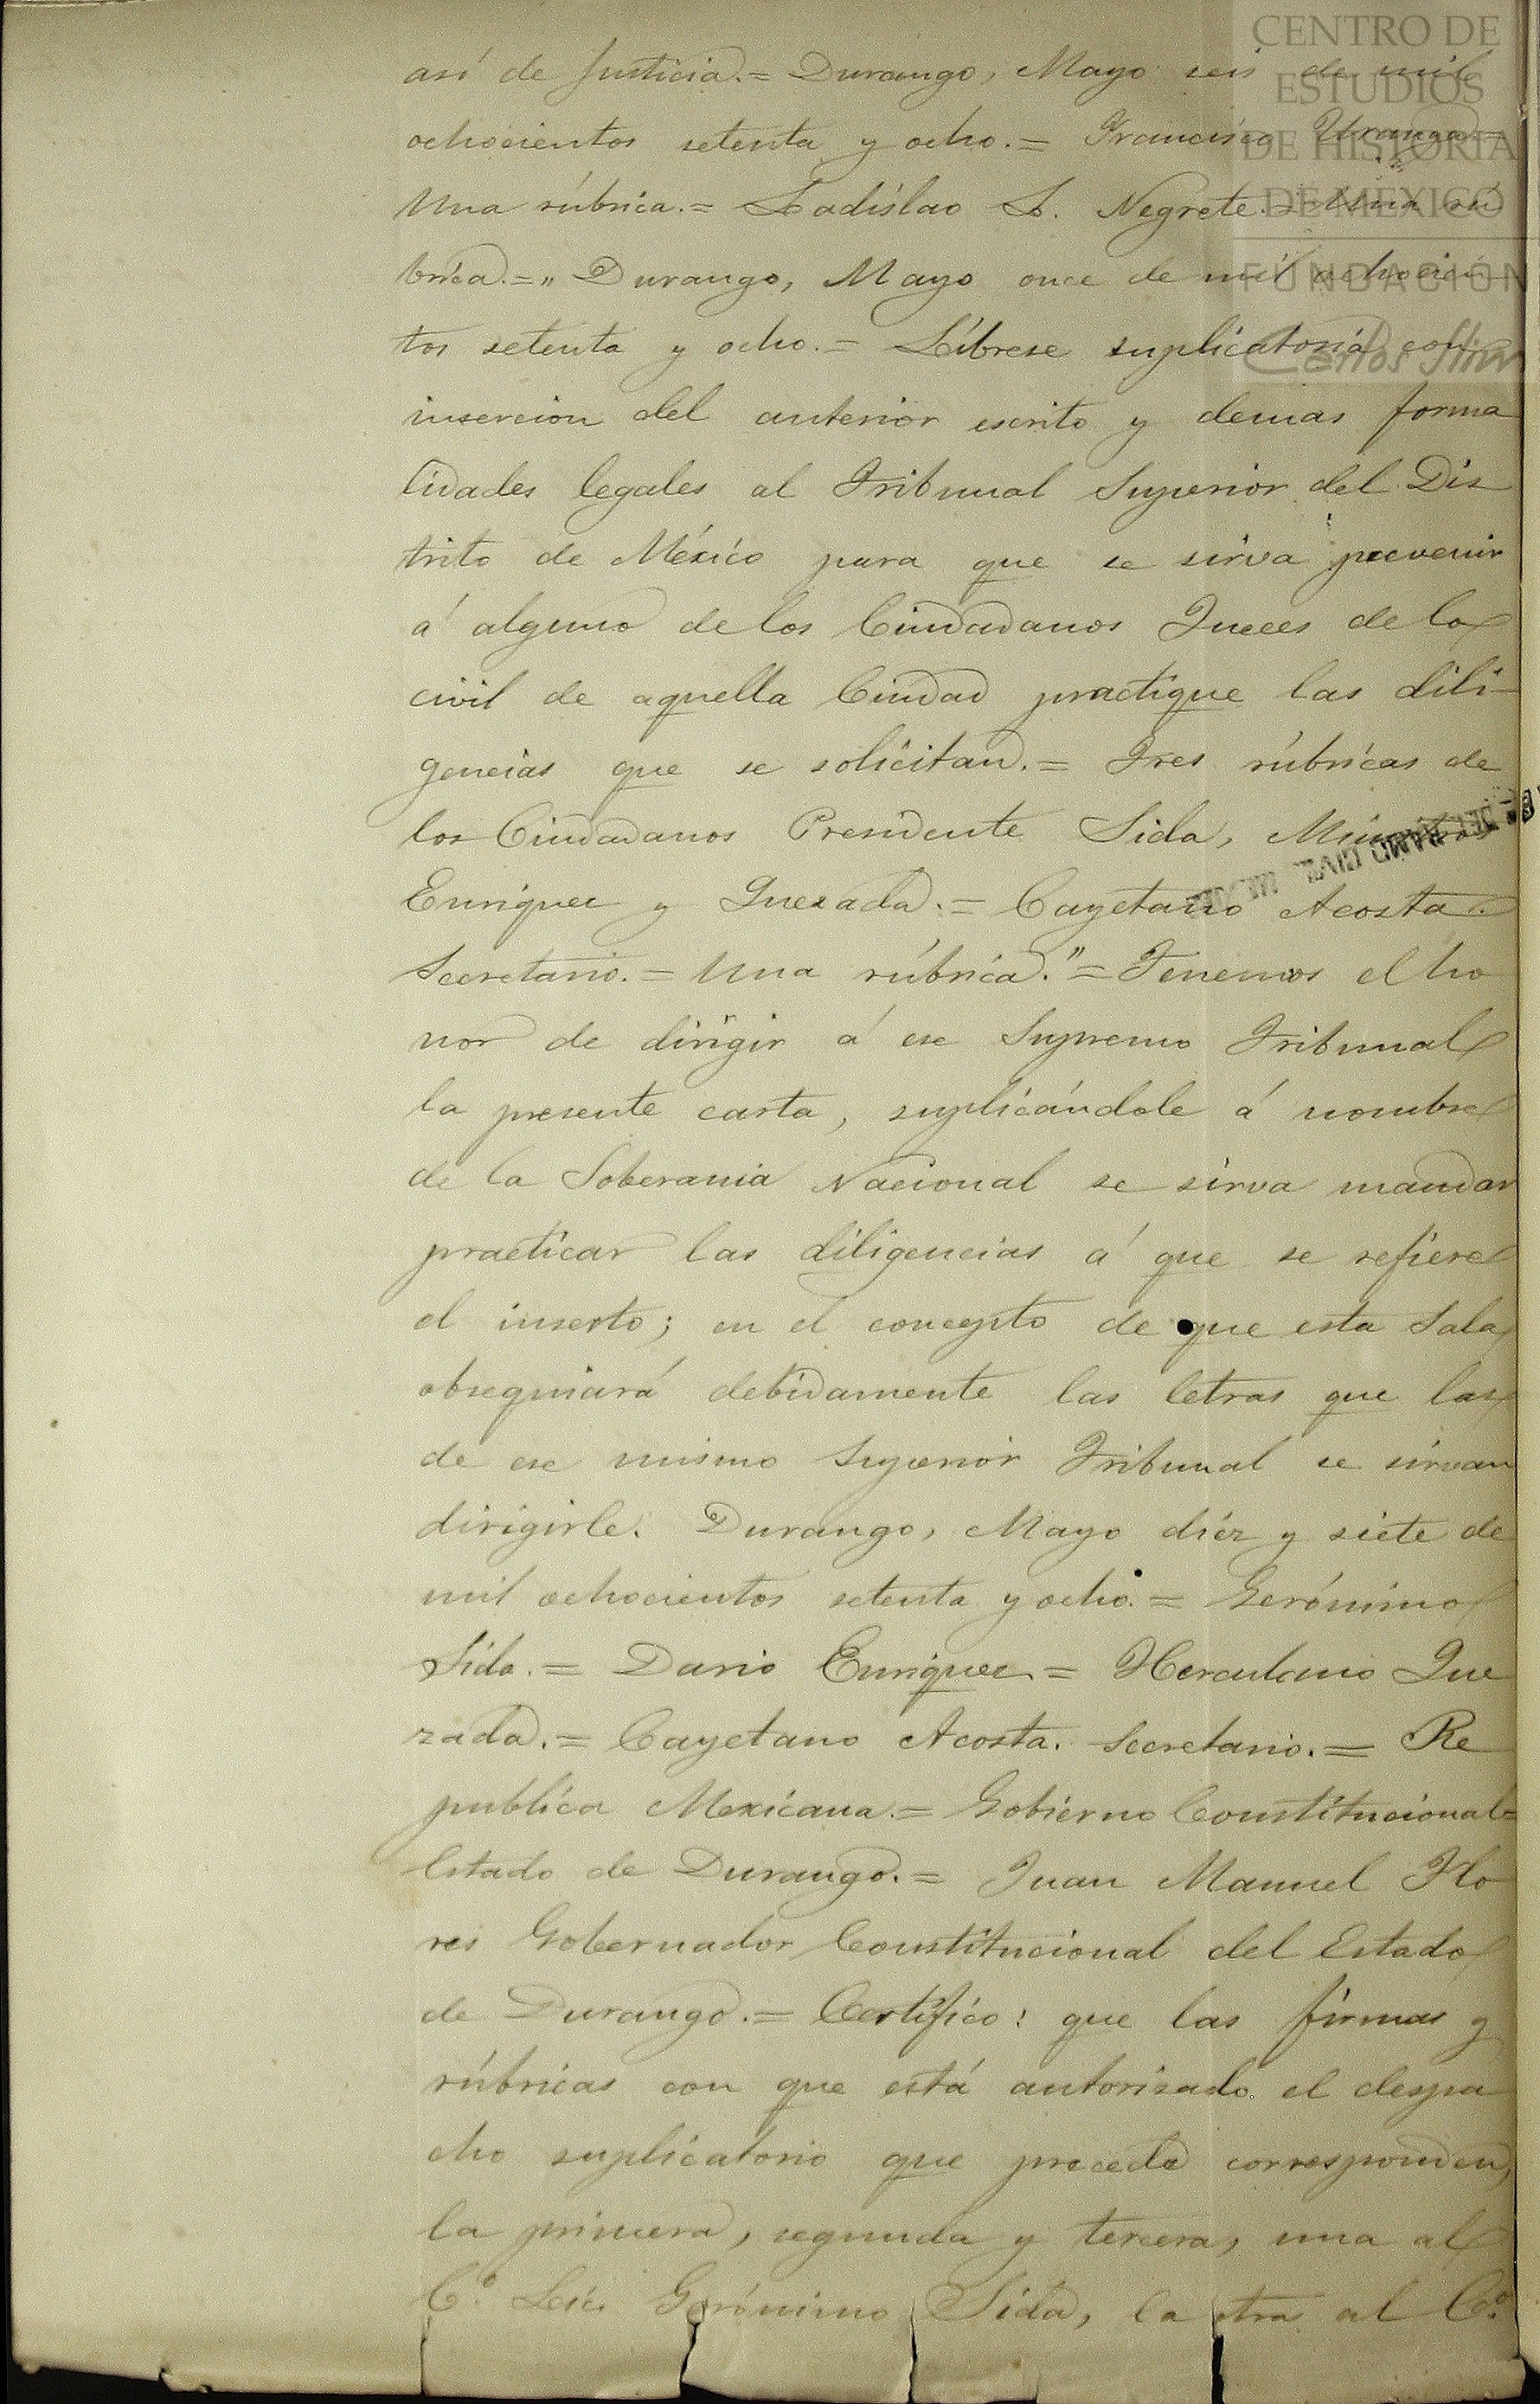 CENTRO DE
ESTUDIOS
DE HISTORIA
DE MEXICO
FUNDACION
Carlos Slim
así de Justicia.= Durango, Mayo seis de mil
ochocientos setenta y ocho.= Francisco Uranga=
Una rúbrica.= Ladislao L. Negrete.= Una rú
brica.=" Durango, Mayo once de mil ochocien
tos setenta y ocho.= Líbrese suplicatoria con
insercion del anterior escrito y demas forma
lidades legales al Tribunal Superior del Dis
trito de México para que se sirva prevenir
á alguno de los Ciudadanos Jueces de lo
civil de aquella Ciudad practique las dili-
gencias que se solicitan.= Tres rúbricas de
los Ciudadanos Presidente Sida, Ministros
Enriquez y Quezada.= Cayetano Acosta.
Secretario.= Una rúbrica."= Tenemos el ho
nor de dirigir á ese Supremo Tribunal
la presente carta, suplicándole á nombre
de la Soberania Nacional se sirva mandar
practicar las diligencias á que se refiere
el inserto; en el concepto de que esta Sala
obsequiará debidamente las letras que las
de ese mismo Superior Tribunal se sirvan
dirigirle. Durango, Mayo diéz y siete de
mil ochocientos setenta y ocho.= Gerónimo
Sida.= Dario Enriquez= Herculano Que
zada.= Cayetano Acosta. Secretario.= Re
publica Mexicana.= Gobierno Constitucional=
Estado de Durango.= Juan Manuel Flo
res Gobernador Constitucional del Estado
de Durango.= Certifico: que las firmas y
rúbricas con que está autorizado el despa
cho suplicatorio que precede corresponden,
la primera, segunda y tercera, una al
C.º Lic. Gerónimo Sida, la otra al C.º